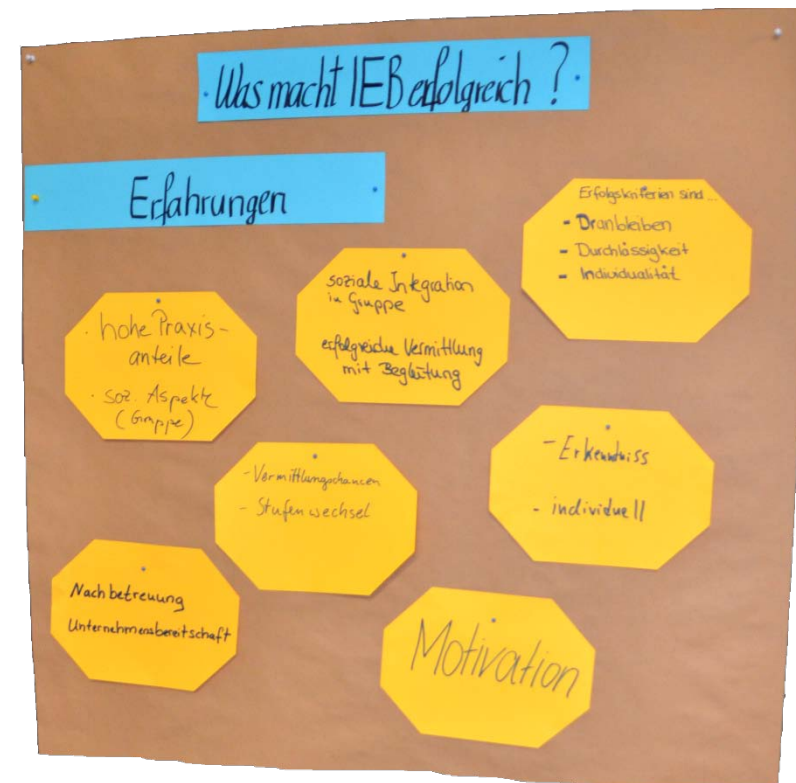 Was macht IEB erfolgreich?
Erfahrungen
Erfolgskriterien sind...
- Dranbleiben
- Durchlässigkeit
- Individualität
soziale Integration
in Gruppe
erfolgreiche Vermittlung
mit Begleitung
· hohe Praxis-
anteile
· soz. Aspekte
(Gruppe)
- Erkenntniss
- individuell
- Vermittlungschancen
- Stufenwechsel
Nachbetreuung
Unternehmensbereitschaft
Motivation